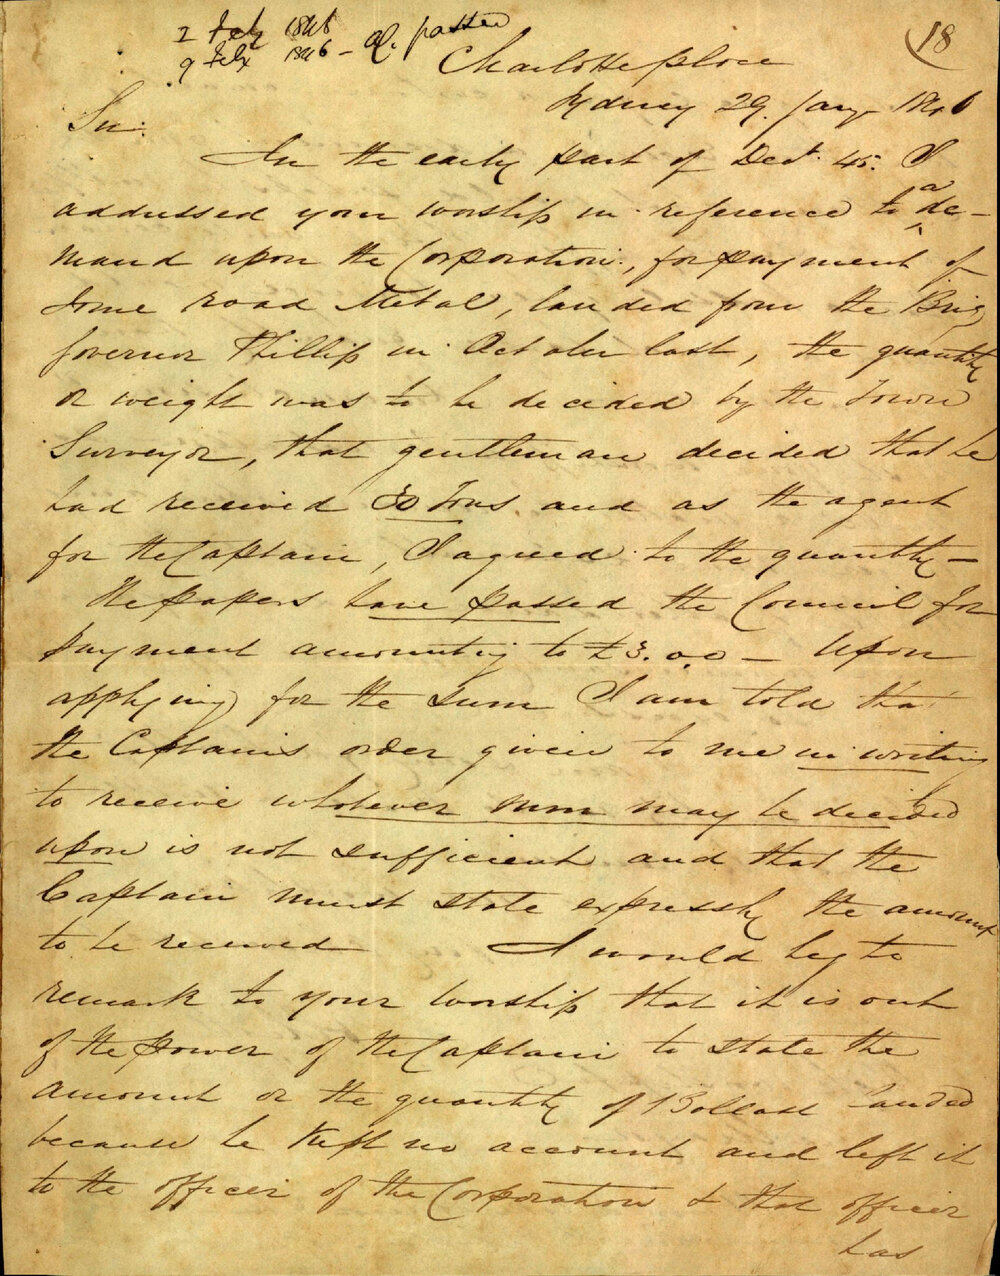 2 Feby 1846
9 Feby 1846 -
18
Charlotte place
Sydney 29. Jany 1846
Sir.
In the early part of Decr. 45. I
a
addressed your worship in reference to de-
mand upon the Corporation, for payment of
some road Metal, landed from the Brig
Governor Phillip in October last, the quantity
or weight was to be decided by the Town
Surveyor, that gentleman decided that he
had received 30 Tons and as the agent
for the Captain, I agreed to the quantity -
the papers have passed the Council for
payment amounting to £3.0.0 - Upon
applying for the sum I am told that
the Captains order given to me in writing
to receive whatever sum may be decided
upon is not sufficient and that the
Captain must state expressly the amount
to be received I would beg to
remark to your worship that it is out
of the power of the Captain to state the
amount or the quantity of Ballast landed
because he kept no account and left it
to the officer of the Corporation & that officer
has